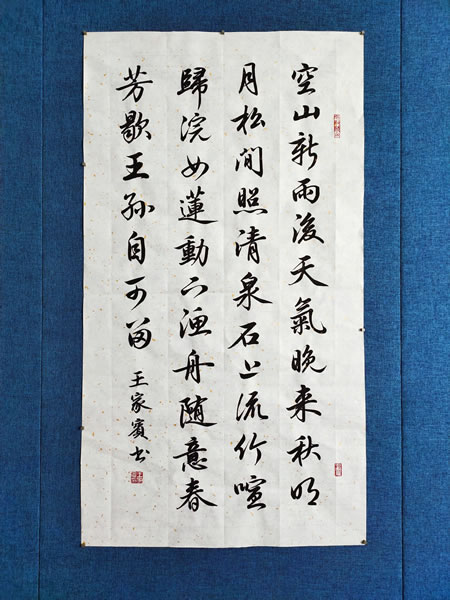 空山新雨後天氣晚来秋明
月松間照清泉石上流竹喧
歸浣女蓮動下漁舟随意春
芳歇王孫自可留
王家賓书